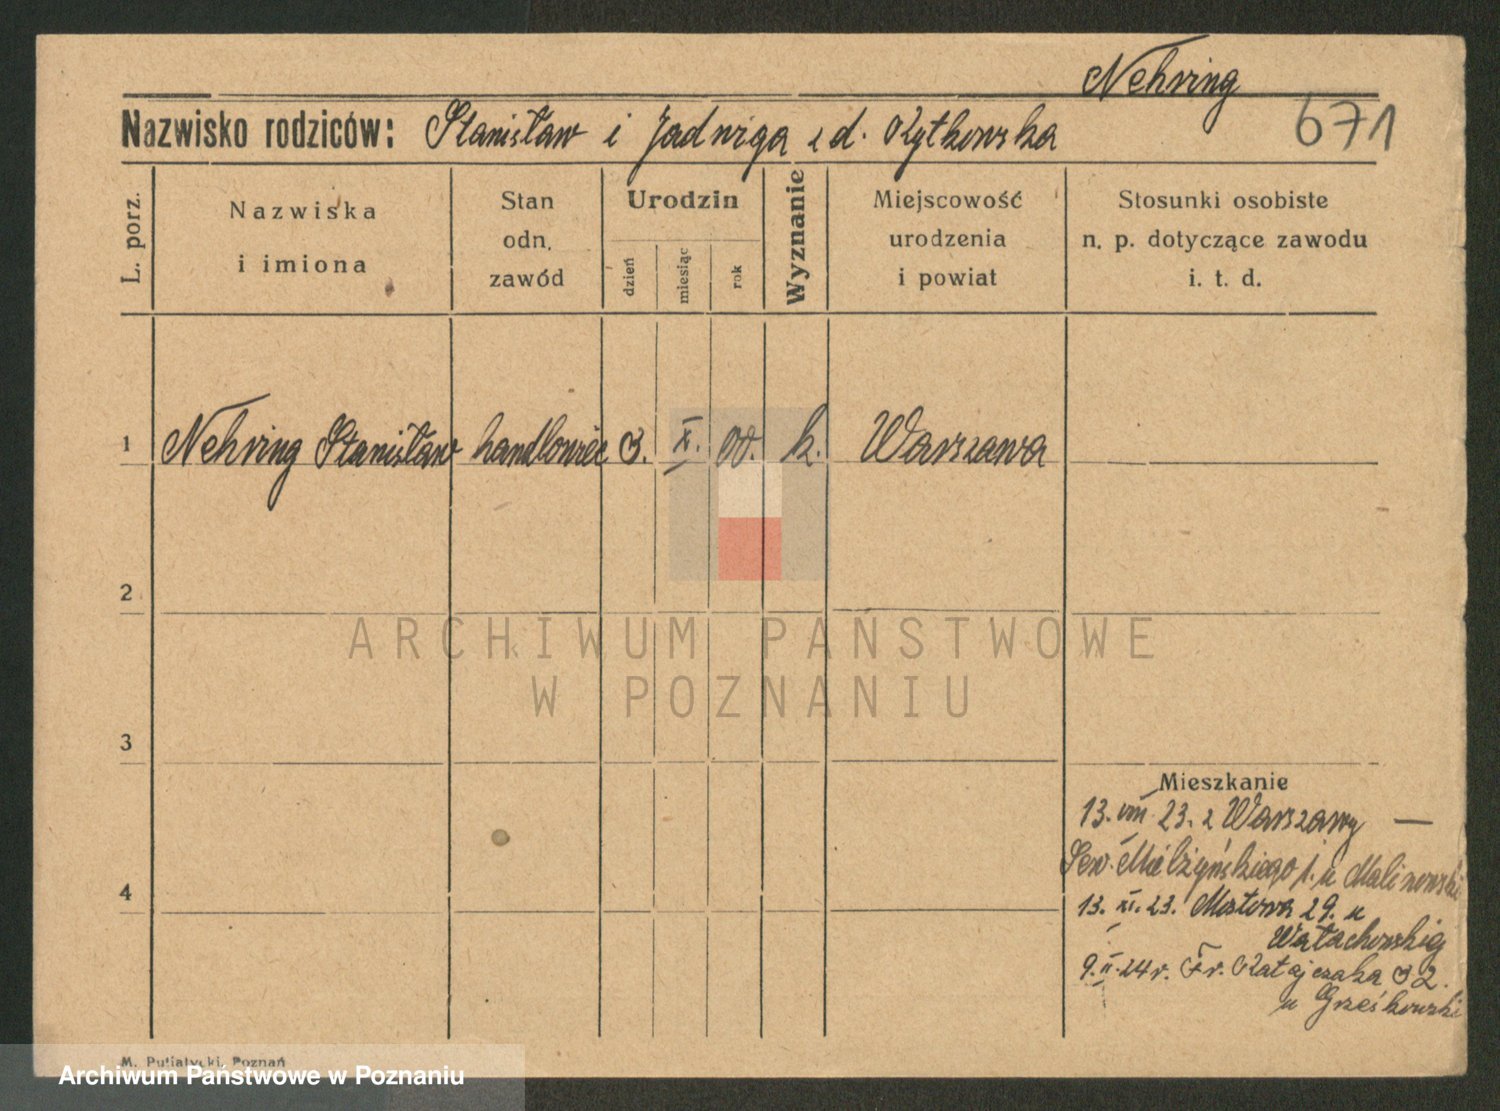 Nehring
671
Nazwisko rodziców: Stanisław i Jadwiga z d. Rytkowska
L. porz.
Nazwiska i imiona
Stan odn. zawód
Urodzin
dzień
miesiąc
rok
Wyznanie
Miejscowość urodzenia i powiat
Stosunki osobiste n. p. dotyczące zawodu i. t. d.
1 Nehring Stanisław handlowiec 3. X. 00. k. Warszawa
2
ARCHIWUM PAŃSTWOWE
W POZNANIU
3
Mieszkanie
13. VIII 23. z Warszawy —
Sew. Mielżyńskiego u Malinowski
4
13. XI. 23. Mostowa 29. u
9. II. 24 r. Fr. Ratajczaka 32.
u Grześkowski
M. Putiatycki, Poznań
Archiwum Państwowe w Poznaniu